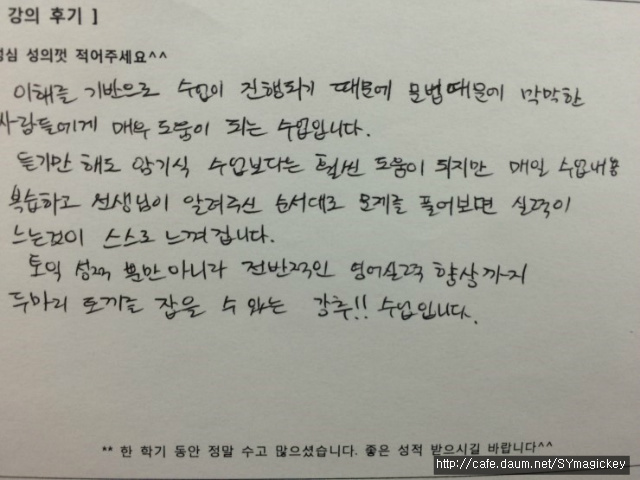 강의 후기 ]
성심 성의껏 적어주세요^^
이해를 기반으로 수업이 진행되기 때문에 문법때문에 막막한
사람들에게 매우 도움이 되는 수업입니다.
듣기만 해도 암기식 수업보다는 훨씬 도움이 되지만 매일 수업내용
복습하고 선생님이 알려주신 순서대로 문제를 풀어보면 실력이
느는것이 스스로 느껴집니다.
토익 성적 뿐만아니라 전반적인 영어실력 향상까지
두마리 토끼를 잡을 수 있는 강추!! 수업입니다.
** 한 학기 동안 정말 수고 많으셨습니다. 좋은 성적 받으시길 바랍니다^^
http://cafe.daum.net/SYmagickey